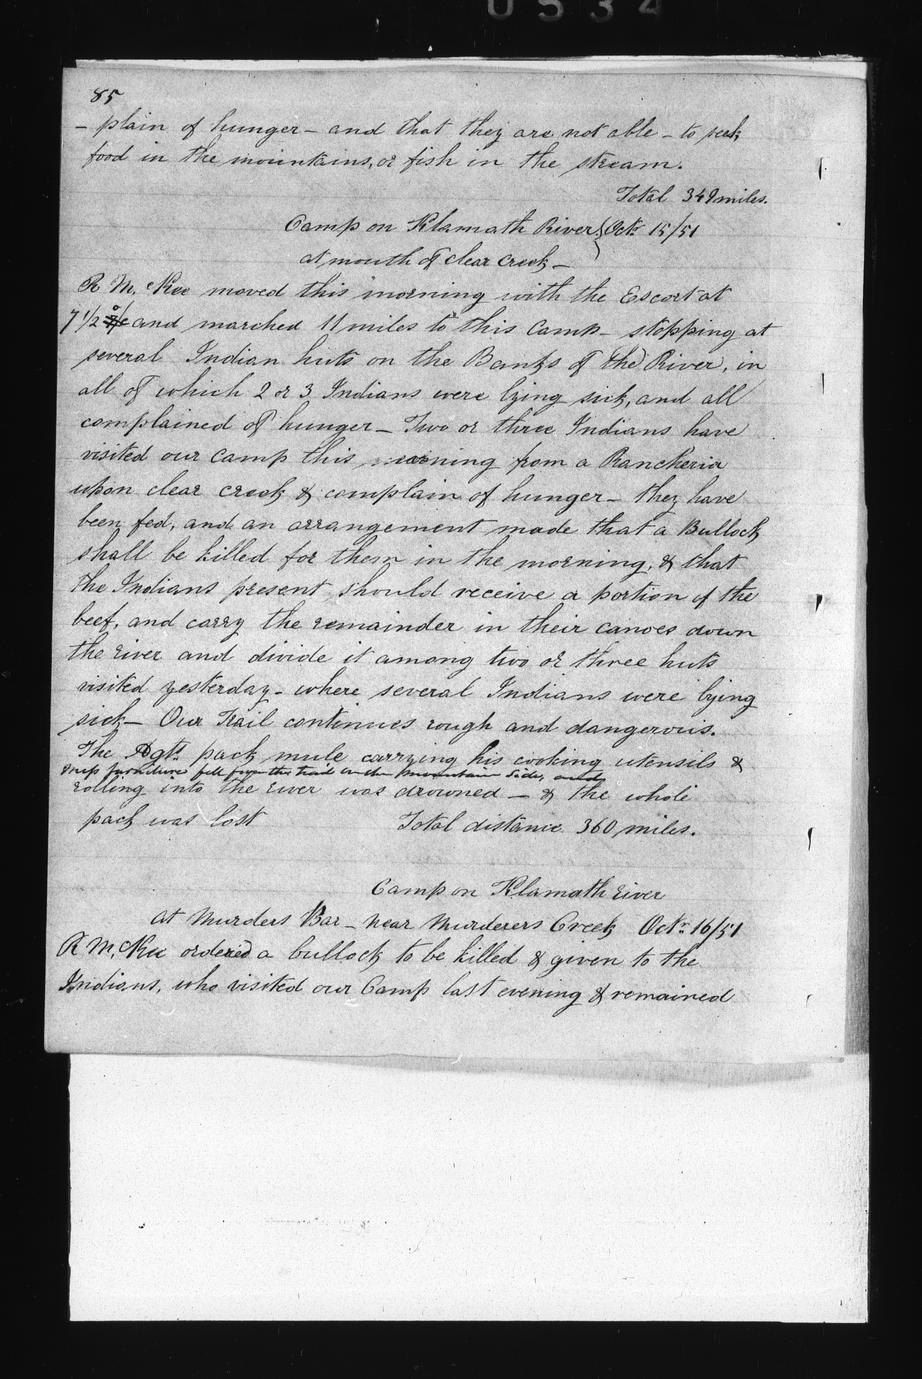 0534
85
- plain of hunger - and that they are not able - to seek
food in the mountains, or fish in the stream.
Total 349 miles.
Camp on Klamath River } Oct. 15/51
at mouth of clear creek -
R McKee moved this morning with the Escort at
7 1/2 and marched 11 miles to this Camp - stopping at
several Indian huts on the Banks of the River, in
all of which 2 or 3 Indians were lying sick, and all
complained of hunger - Two or three Indians have
visited our camp this morning from a Rancheria
upon clear creek & complain of hunger - they have
been fed, and an arrangement made that a Bullock
shall be killed for them in the morning, & that
the Indians present should receive a portion of the
beef, and carry the remainder in their canoes down
the river and divide it among two or three huts
visited yesterday - where several Indians were lying
sick - Our Trail continues rough and dangerous.
The Agt. pack mule carrying his cooking utensils &
mess furniture fell from the trail on the mountain side, and
rolling into the river was drowned - & the whole
pack was lost Total distance 360 miles.
Camp on Klamath river
at Murders Bar - near Murderers Creek Oct. 16/51
R McKee ordered a bullock to be killed & given to the
Indians, who visited our Camp last evening & remained